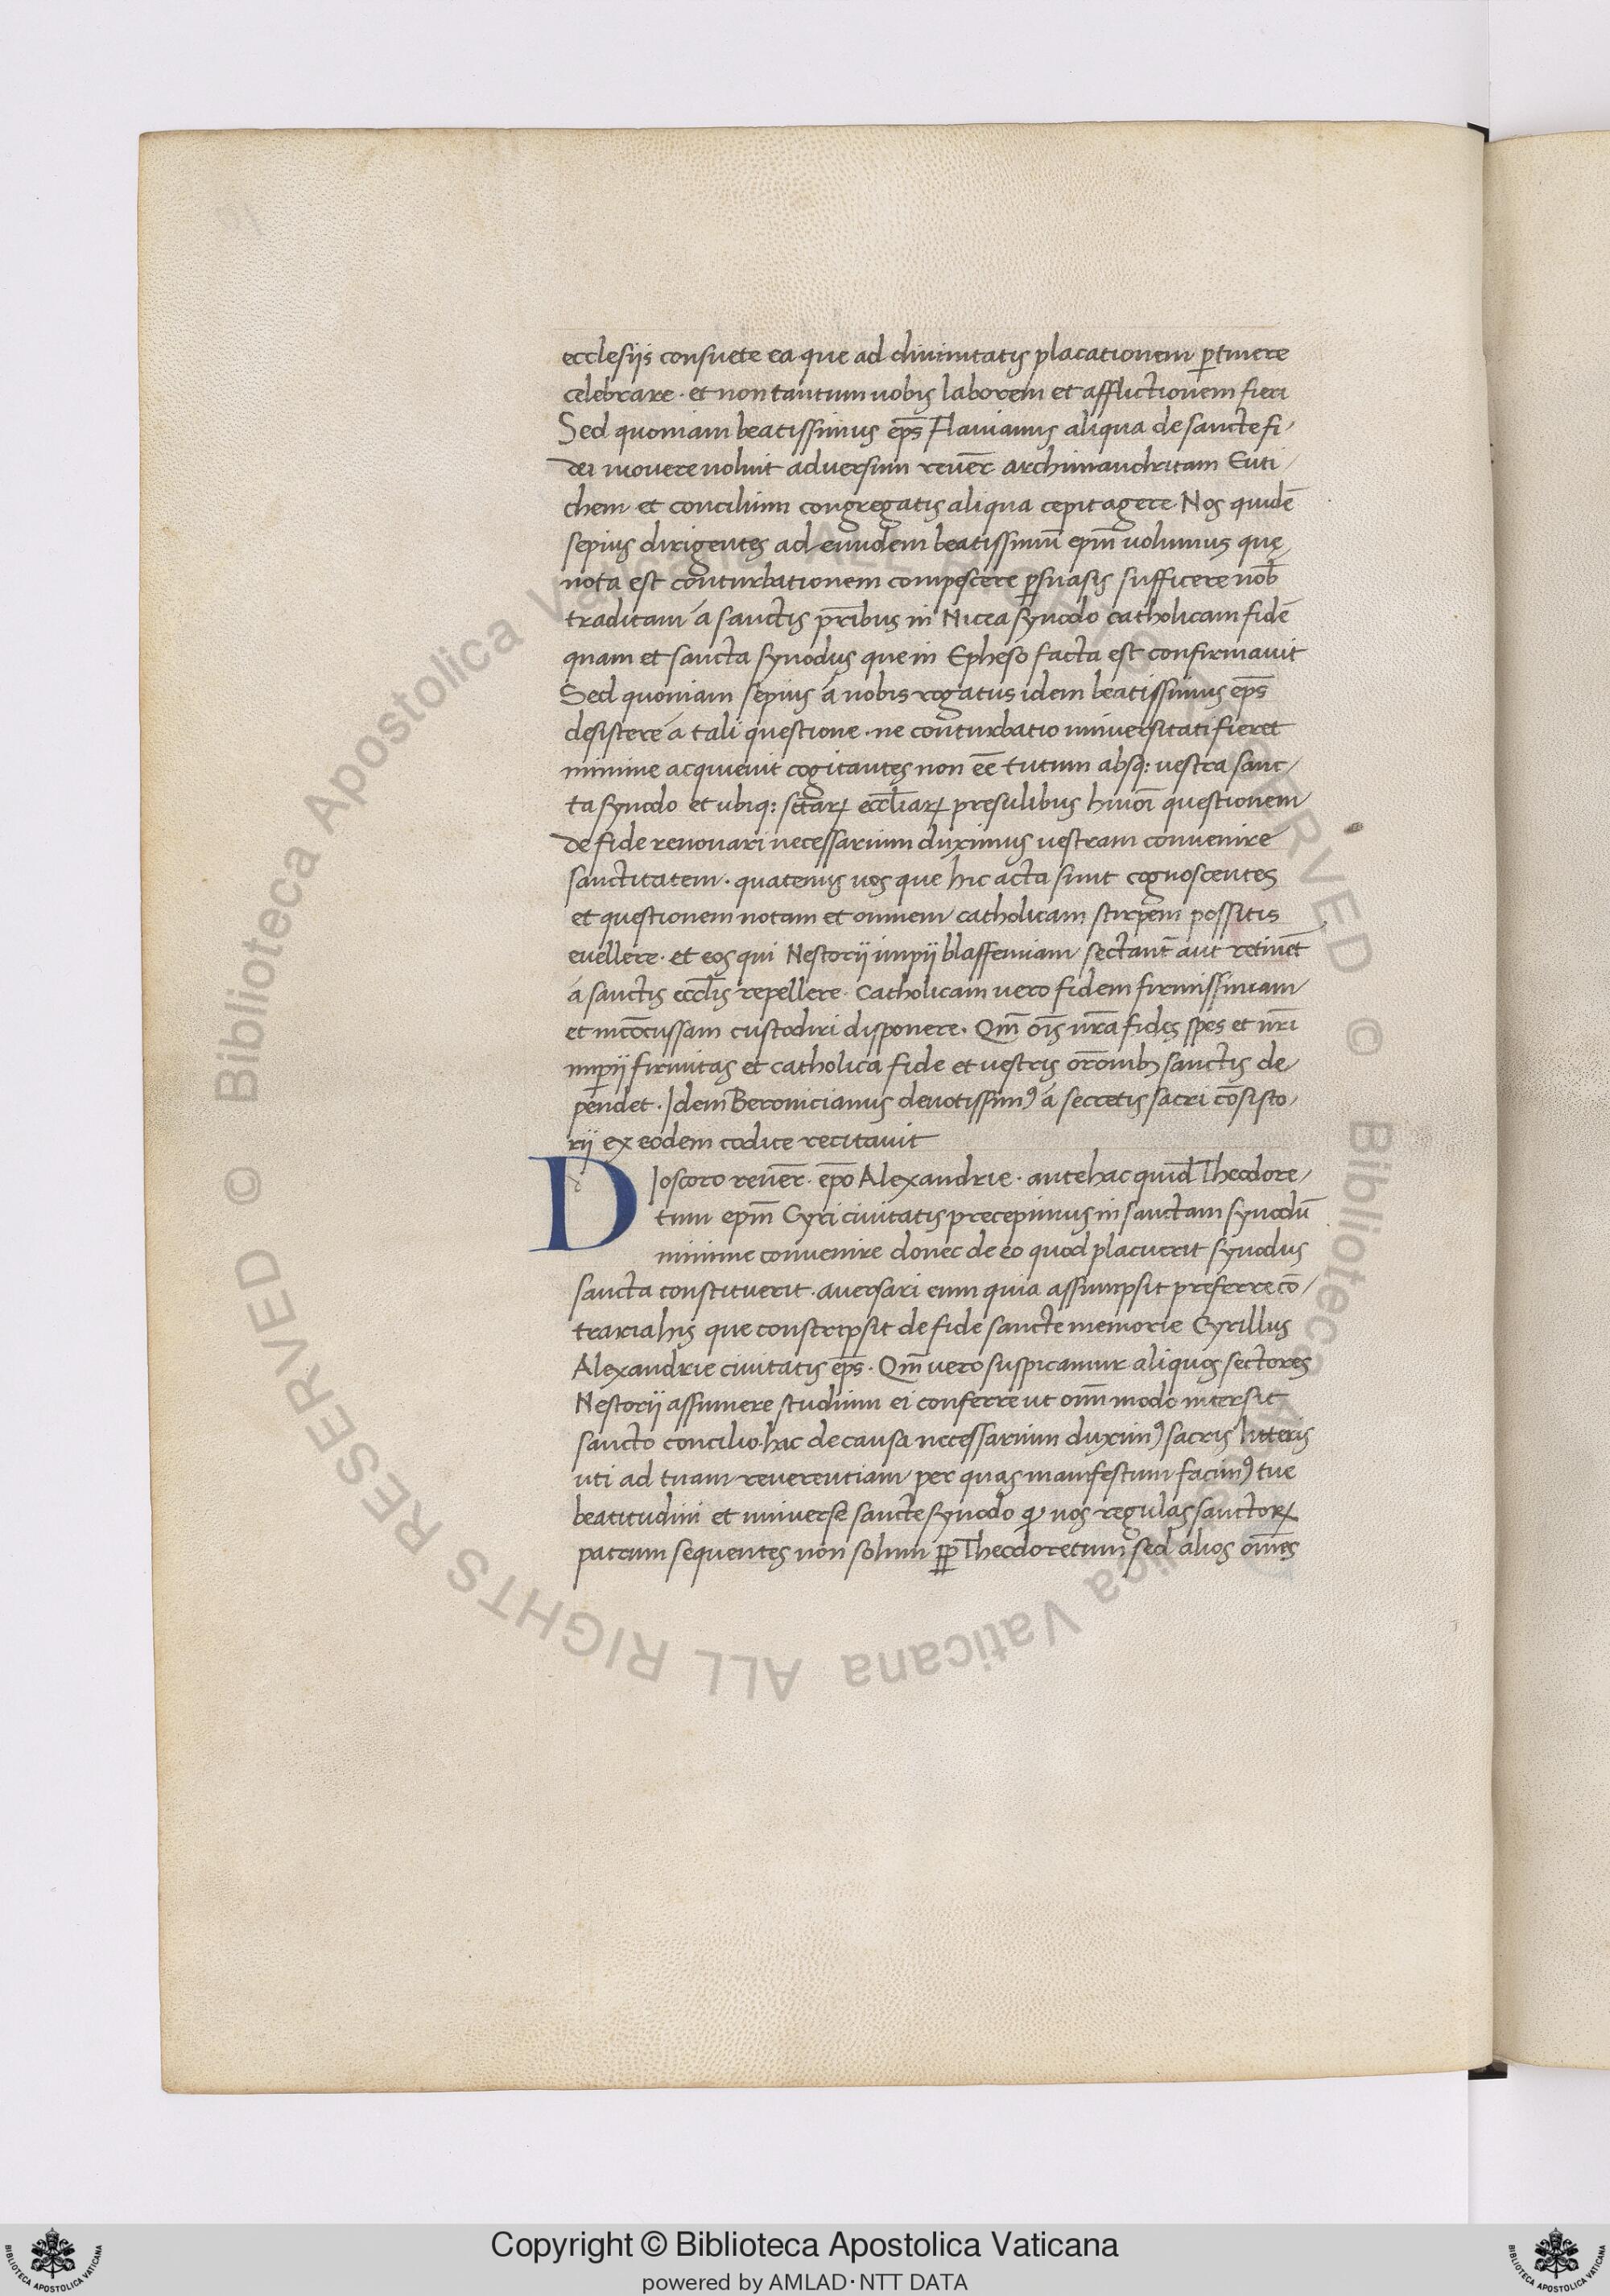 ecclesijs consuete ea que ad divinitatis placationem ꝑtinere
celebrare · et non tantum uobis laborem et afflictionem fieri
Sed quoniam beatissimus ep̄s Flavianus aliqua de sancte fi/
dei movere uoluit adversum reuer̄ archimandritam Euti/
chem et concilium congregatis aliqua cepit agere Nos quidē
sepius dirigentes ad eundem beatissimū ep̄m uolumus que
nota est conturbationem compescere ꝑsuasis sufficere nob̄
traditam á sanctis pr̄ibus in Nicea synodo catholicam fidē
quam et sancta synodus que in Epheso facta est confirmavit
Sed quoniam sepius á nobis rogatus idem beatissimus ep̄s
desistere á tali questione · ne conturbatio universitati fieret
minime acquievit cogitantes non eē tutum absq: uestra sanc/
ta synodo et ubiq: sc̄tarꝝ eccl̄iarꝝ presulibus huiōi questionem
de fide renovari necessarium duximus uestram convenire
sanctitatem · quatenus uos que hic acta sunt cognoscentes
et questionem notam et omnem catholicam stirpem possitis
evellere · et eos qui Nestorij impij blasfemiam sectant̄ aut retinēt
á sanctis eccl̄is repellere · Catholicam uero fidem firmissimam
et incōcussam custodiri disponere · Qm̄ oīs nr̄a fides spes et nr̄i
imꝑij firmitas et catholica fide et uestris or̄onibꝫ sanctis de/
pendet · Idem Beronicianus devotissimꝰ á secretis sacri cōsisto/
rij ex eodem codice recitavit
D Ioscoro reuer̄ · ep̄o Alexandrie · antehac quid̄ Theodore/
tum ep̄m Cyri civitatis precepimus in sanctam synodū
minime convenire donec de eo quod placuerit synodus
sancta constituerit · aversari eum quia assumpsit preferre cō/
traria his que conscripsit de fide sancte memorie Cyrillus
Alexandrie civitatis ep̄s · Qm̄ uero suspicamur aliquos sectores
Nestorij assumere studium ei conferre ut om̄imodo intersit
sancto concilio · hac de causa necessarium duximꝰ sacris litteris
uti ad tuam reverentiam per quas manifestum facimꝰ tue
beatitudini et universe sancte synodo ꝙ nos regulas sanctorꝝ
patrum sequentes non solum ꝓpt̄ Theodoretum sed alios om̄es
Copyright © Biblioteca Apostolica Vaticana
powered by AMLAD·NTT DATA